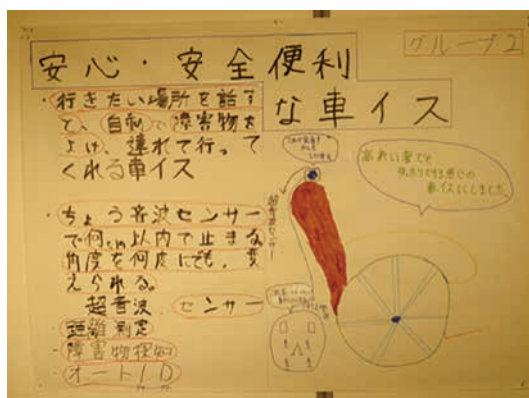 グループ2
安心・安全便利
な車イス
・行きたい場所を話す
と、自動で障害物を
よけ、連れて行って
くれる車イス
・ちょう音波センサー
で何cm以内で止まる。
角度を何度にでも、変
えられる。
超音波センサー
・距離測定
・障害物探知
・オートID
超音波センサー
高れい者でも